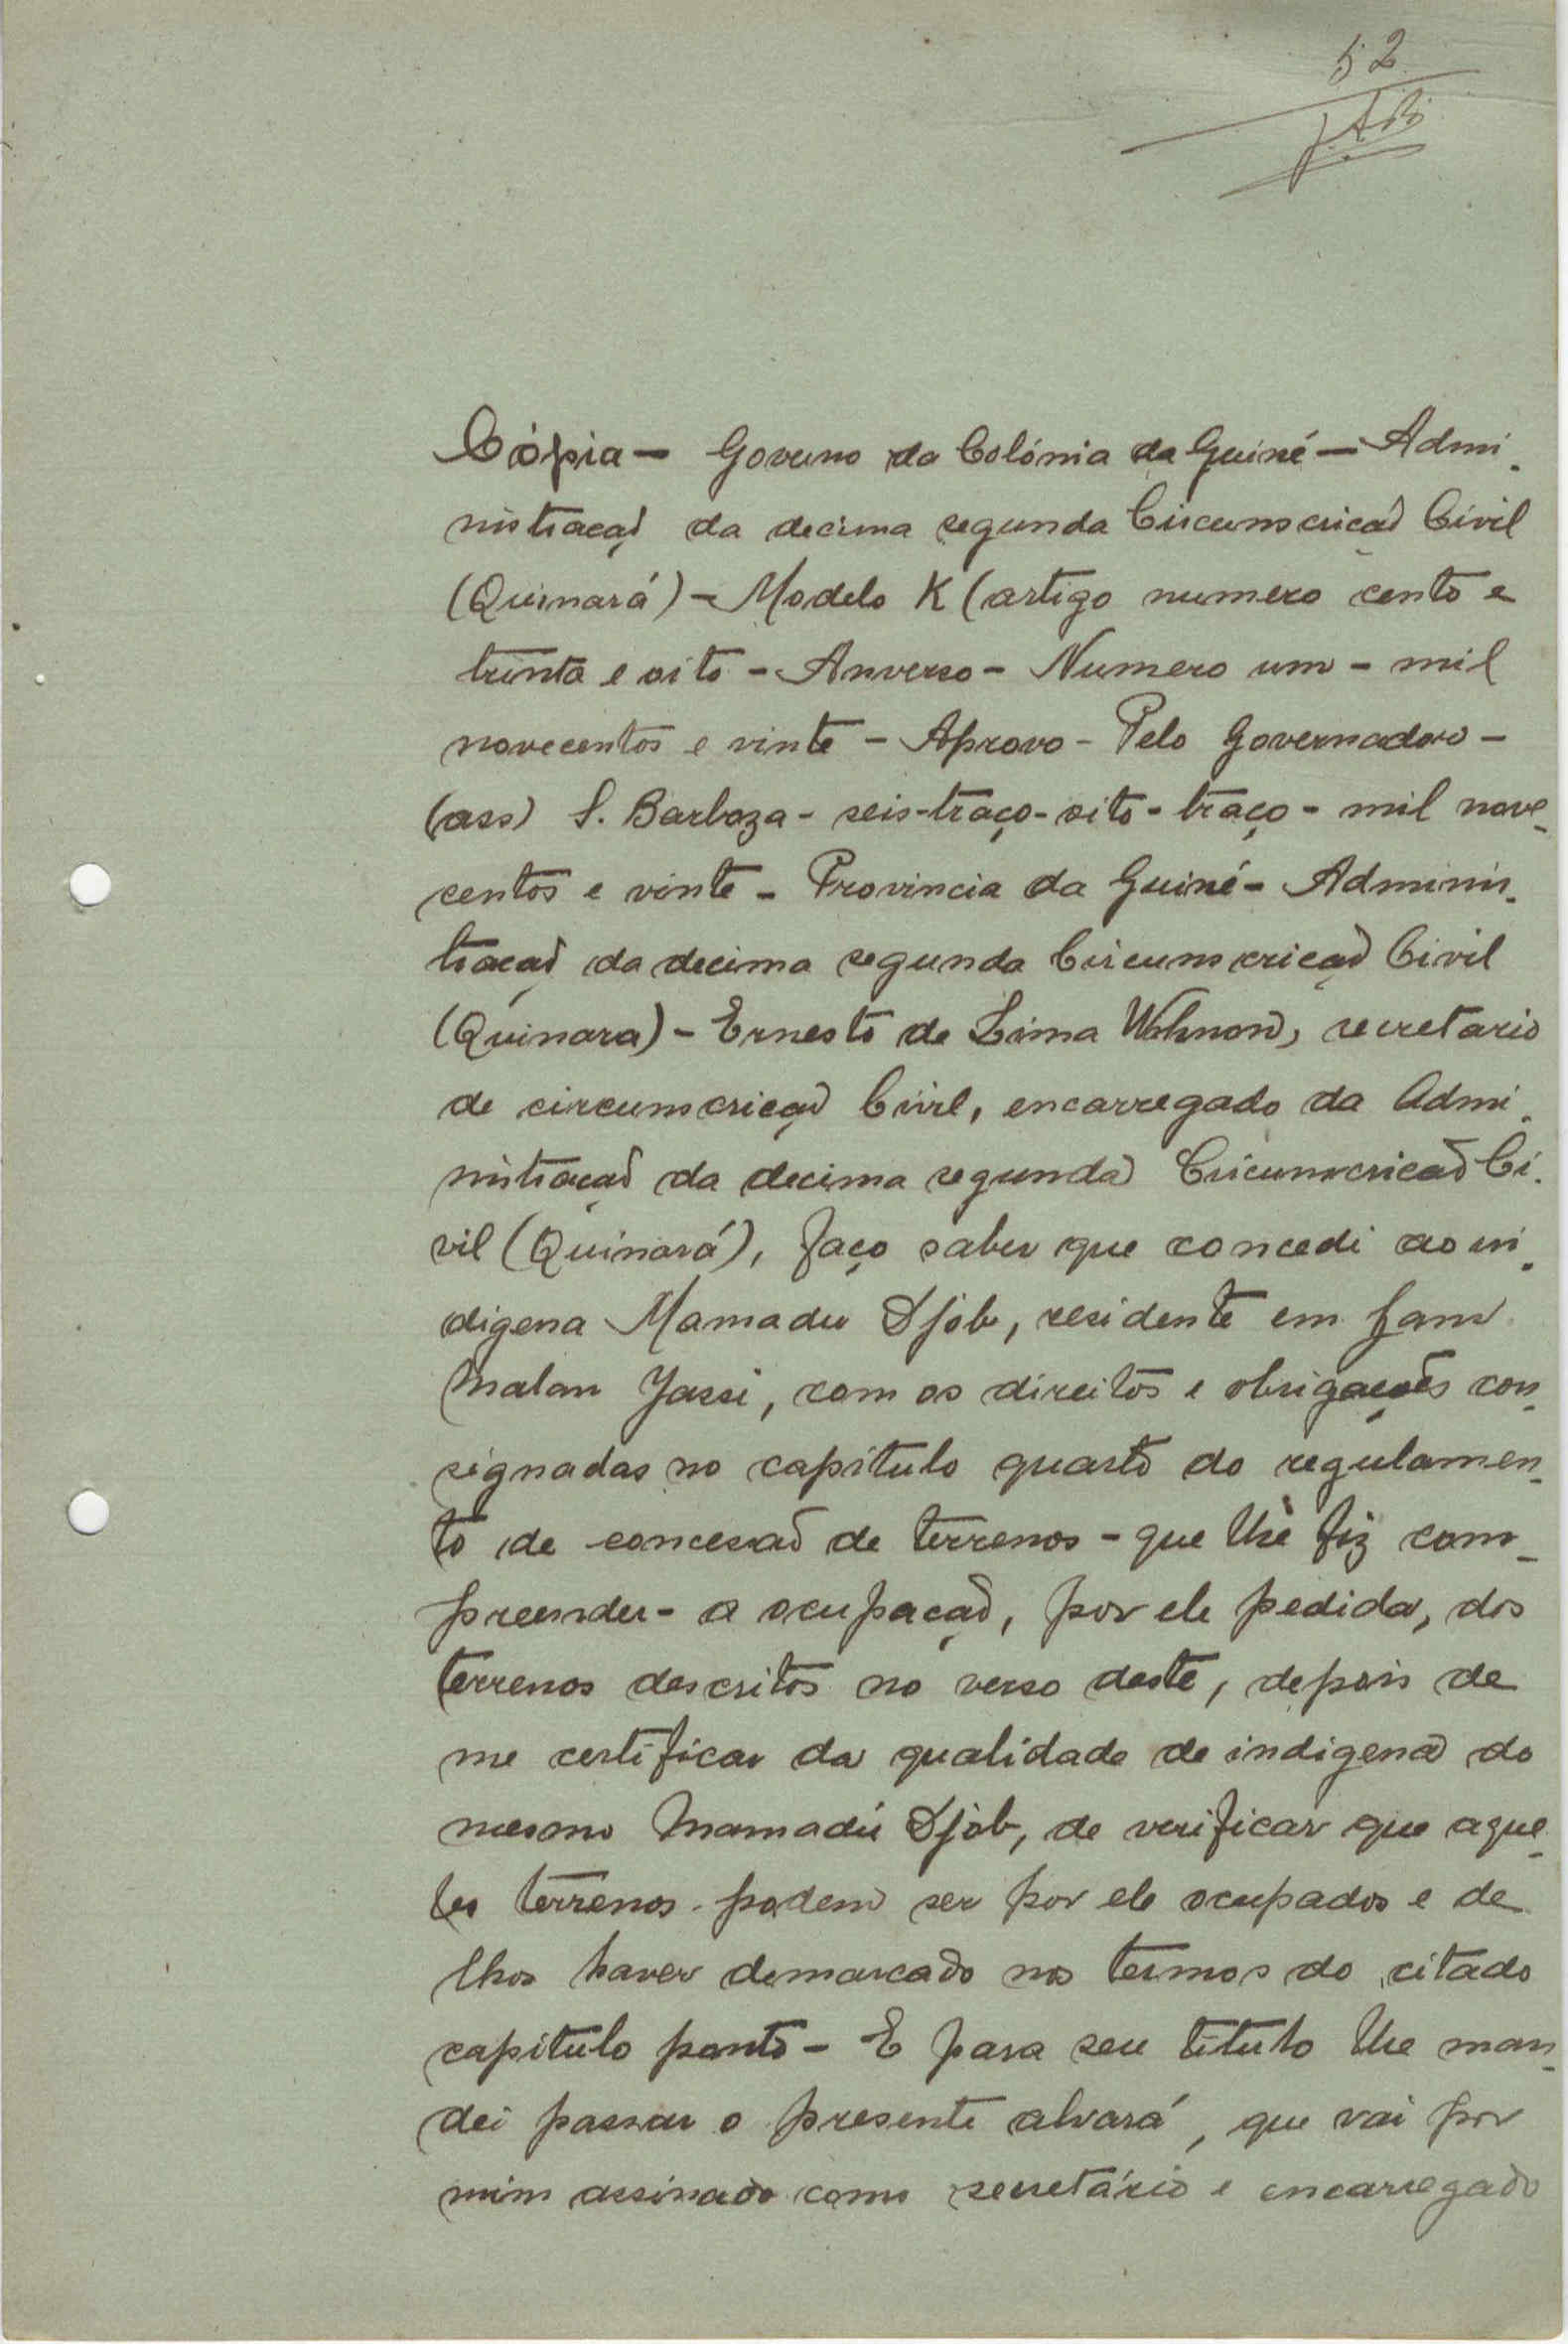 52
Cópia - Governo da Colónia da Guiné - Admi-
nistração da decima segunda Circumscrição Civil
(Quinará) - Modelo K (artigo numero cento e
trinta e oito - Anverso - Numero um - mil
novecentos e vinte - Aprovo - Pelo Governador -
(ass) S. Barboza - seis-traço-oito-traço - mil nove-
centos e vinte - Provincia da Guiné - Adminis-
tração da decima segunda Circumscrição Civil
(Quinara) - Ernesto de Lima Wahnon, secretario
de circumscrição Civil, encarregado da Admi-
nistração da decima segunda Circumscrição Ci-
vil (Quinará), faço saber que concedi ao in-
digena Mamadu Djob, residente em
Malan Jassi, com os direitos e obrigações con-
signadas no capítulo quarto do regulamen-
to de concessão de terrenos - que lhe fiz com-
preender - a ocupação, por ele pedida, dos
terrenos descritos no verso deste, depois de
me certificar da qualidade de indigena do
mesmo Mamadú Djob, de verificar que aque-
les terrenos podem ser por ele ocupados e de
lhos haver demarcado nos termos do citado
capítulo ponto - E para seu titulo lhe man-
dei passar o presente alvará, que vai por
mim assinado como secretário e encarregado